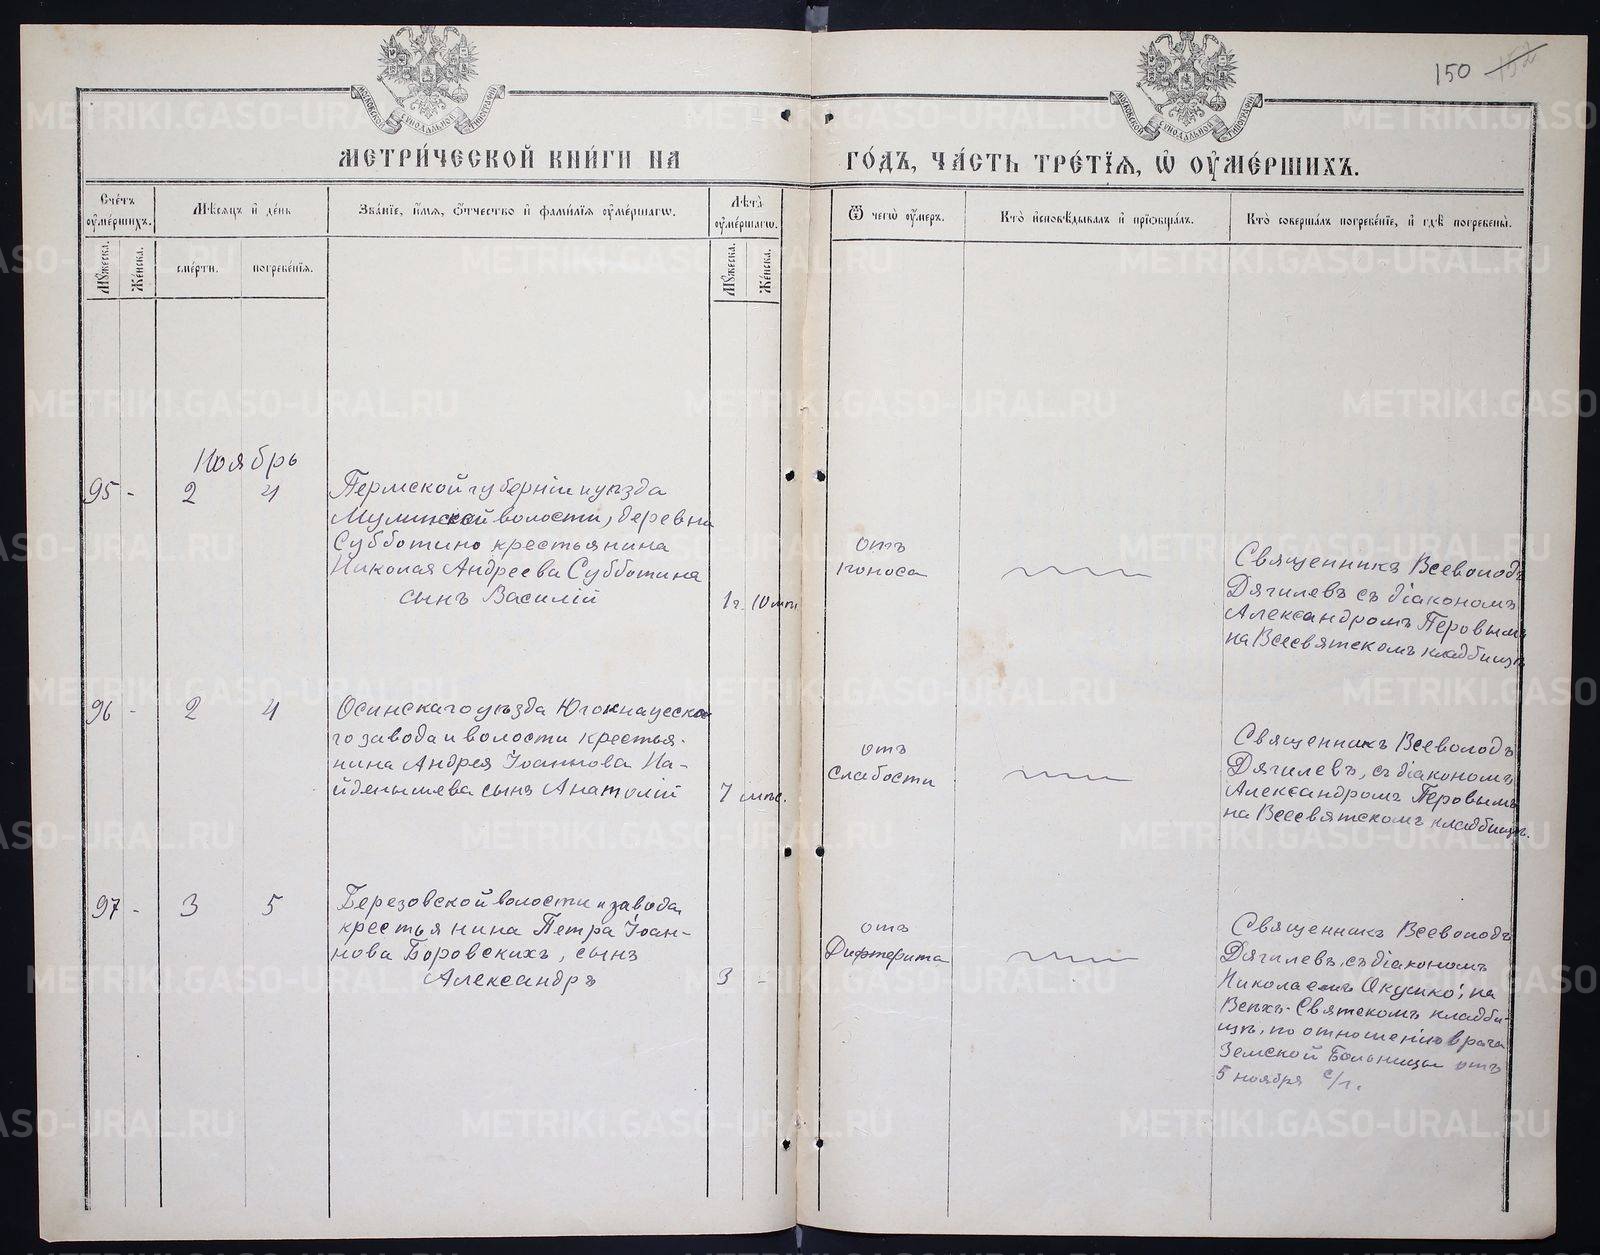 150 152
МОСКОВСКОЙ СѴНОДАЛЬНОЙ ТИПОГРАФІИ
МОСКОВСКОЙ СѴНОДАЛЬНОЙ ТИПОГРАФІИ
МЕТРИ́ЧЕСКОЙ КНИ́ГИ НА
ГО́ДЪ, ЧА́СТЬ ТРЕ́ТІѦ, Ѡ҆ ОУ҆МЕ́РШИХЪ.
Сче́тъ оу҆ме́ршихъ.
Мѣ́сѧцъ и҆ де́нь
Зва́нїе, и҆́мѧ, ѻ҆́тчество и҆ фами́лїѧ оу҆ме́ршагѡ.
Лѣ́та оу҆ме́ршагѡ.
Ѿ чегѡ̀ оу҆́меръ.
Кто̀ и҆сповѣ́дывалъ и҆ прїѡбща́лъ.
Кто̀ соверша́лъ погребе́нїе, и҆ гдѣ̀ погребены̀.
Мꙋ́жеска.
Же́нска.
сме́рти.
погребе́нїѧ.
Мꙋ́жеска.
Же́нска.
Ноябрь
95 - 2 4
Пермской губерніи и уѣзда
Мулинской волости, деревни
Субботино крестьянина
Николая Андреева Субботина
сынъ Василій
1 г. 10 мѣс
отъ
поноса
Священникъ Всеволодъ
Дягилевъ съ діакономъ
Александромъ Перовымъ
на Всесвятскомъ кладбищѣ
96 - 2 4
Осинскаго уѣзда Югокнауфска
го завода и волости крестья-
нина Андрея Іоаннова На-
йденышева сынъ Анатолій
7 мѣс.
отъ
слабости
Священникъ Всеволодъ
Дягилевъ, съ діакономъ
Александромъ Перовымъ
на Всесвятскомъ кладбищѣ.
97 - 3 5
Березовской волости и завода
крестьянина Петра Іоан-
нова Боровскихъ, сынъ
Александръ
3 -
отъ
Дифтерита
Священникъ Всеволодъ
Дягилевъ, съ діакономъ
Николаемъ Окулко, на
Всѣхъ-Святскомъ кладби-
щѣ, по отношенію врача
Земской Больницы отъ
5 ноября с/г.
METRIKI.GASO-URAL.RU